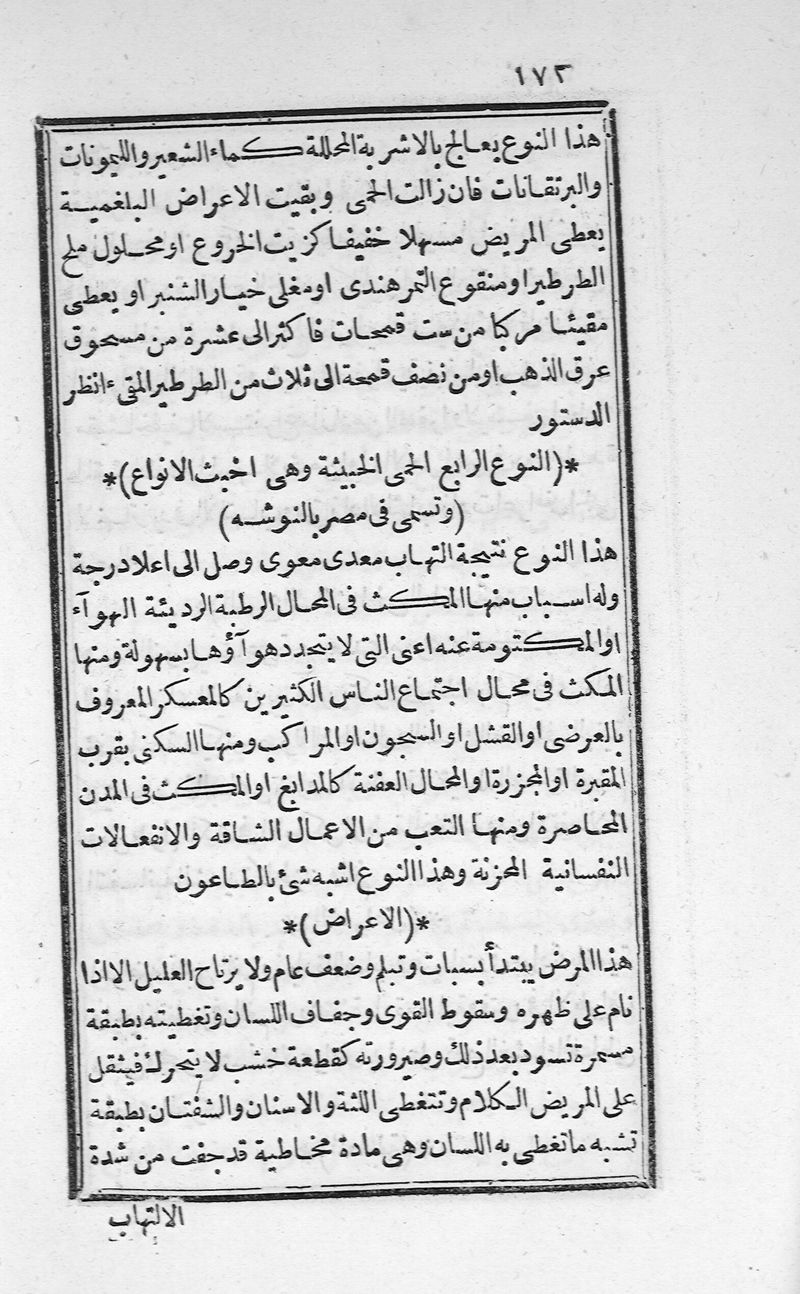 ١٧٣
هذا النوع يعالج بالاشربة المحللة كماء الشعير والليمونات
والبرتقانات فان زالت الحمى وبقيت الاعراض البلغمية
يعطى المريض مسهلا خفيفا كزيت الخروع او محلول ملح
الطرطير او منقوع التمر هندى او مغلى خيار الشنبر او يعطى
مقيئا مركبا من ست قمحات فاكثر الى عشرة من مسحوق
عرق الذهب او من نصف قمحة الى ثلاث من الطرطير المقيء انظر
الدستور
*(النوع الرابع الحمى الخبيثة وهى اخبث الانواع)*
(وتسمى فى مصر بالنوشه)
هذا النوع نتيجة التهاب معدى معوى وصل الى اعلا درجة
وله اسباب منها المكث فى المحال الرطبة الرديئة الهوآء
او المكتومة عنه اعنى التى لا يتجدد هوآؤها بسهولة ومنها
المكث فى محال اجتماع الناس الكثيرين كالمعسكر المعروف
بالعرضى او القشل او السجون او المراكب ومنها السكنى بقرب
المقبرة او المجزرة او المحال العفنة كالمدابغ او المكث فى المدن
المحاصرة ومنها التعب من الاعمال الشاقة والانفعالات
النفسانية المحزنة وهذا النوع اشبه شئ بالطاعون
*(الاعراض)*
هذا المرض يبتدأ بسبات وتبلم وضعف عام ولا يرتاح العليل الا اذا
نام على ظهره وسقوط القوى وجفاف اللسان وتغطيته بطبقة
مسمرة تسود بعد ذلك وصيرورته كقطعة خشب لا يتحرك فيثقل
على المريض الكلام وتتغطى اللثة والاسنان والشفتان بطبقة
تشبه ما تغطى به اللسان وهى مادة مخاطية قد جفت من شدة
الالتهاب